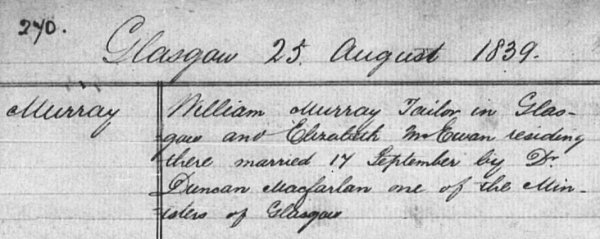 240.
Glasgow 25 August 1839.
Murray
William Murray Tailor in Glas-
gow and Elizabeth McEwan residing
there married 17 September by Dr
Duncan Macfarlan one of the Min-
isters of Glasgow